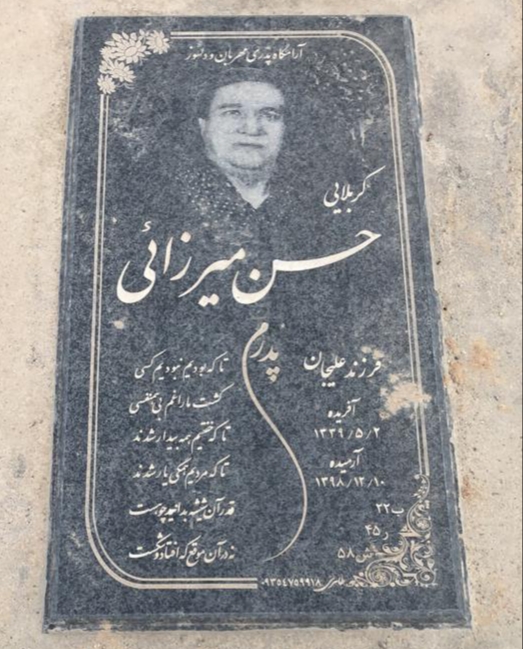 آرامگاه پدری مهربان و دلسوز
کربلایی
حسن میرزائی
پدرم
فرزند علیجان
آفریده
۱۳۳۹/۵/۲
آرمیده
۱۳۹۸/۱۲/۱۰
ب۲۲
ر۴۵
ش۵۸
تا که بودیم نبودیم کسی
کشت ما را غم بی همنفسی
تا که خفتیم همه بیدار شدند
تا که مردیم همگی یار شدند
قدر آن شیشه بدانید چو هست
نه در آن موقع که افتاد و شکست
۰۹۳۵۴۷۵۹۹۱۸